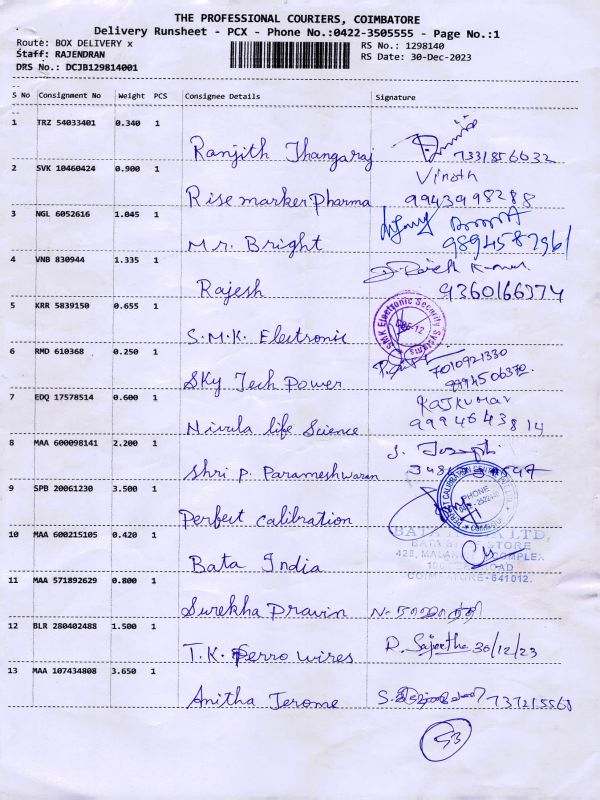 THE PROFESSIONAL COURIERS, COIMBATORE
Delivery Runsheet - PCX - Phone No.:0422-3505555 - Page No.:1
Route: BOX DELIVERY x
RS No.: 1298140
Staff: RAJENDRAN
RS Date: 30-Dec-2023
DRS No.: DCJB129814001
S No Consignment No Weight PCS Consignee Details Signature
1 TRZ 54033401 0.340 1
Ranjith Thangaraj 7331856632
2 SVK 10460424 0.900 1 Vinoth
Rise marker Pharma 9943998288
3 NGL 6052616 1.045 1
Mr. Bright 9894587961
4 VNB 830944 1.335 1
Rajesh 9360166974
5 KRR 5839150 0.655 1
S.M.K. Electronic
SMK Electronic Security Systems
6 RMD 610368 0.250 1
7010921330
Sky Tech Power 9994506370
7 EDQ 17578514 0.600 1 RAJKUMAR
Nivula life Science 9994643814
8 MAA 600098141 2.200 1 J. Joseph
Shri P. Parameshwaran
9 SPB 20061230 3.500 1
Perfect calibration
PHONE
10 MAA 600215105 0.420 1
Bata India
COIMBATORE-641012.
11 MAA 571892629 0.800 1
Surekha Pravin
12 BLR 280402488 1.500 1
T.K. Ferro wires 30/12/23
13 MAA 107434808 3.650 1
Anitha Jerome 737215568
53